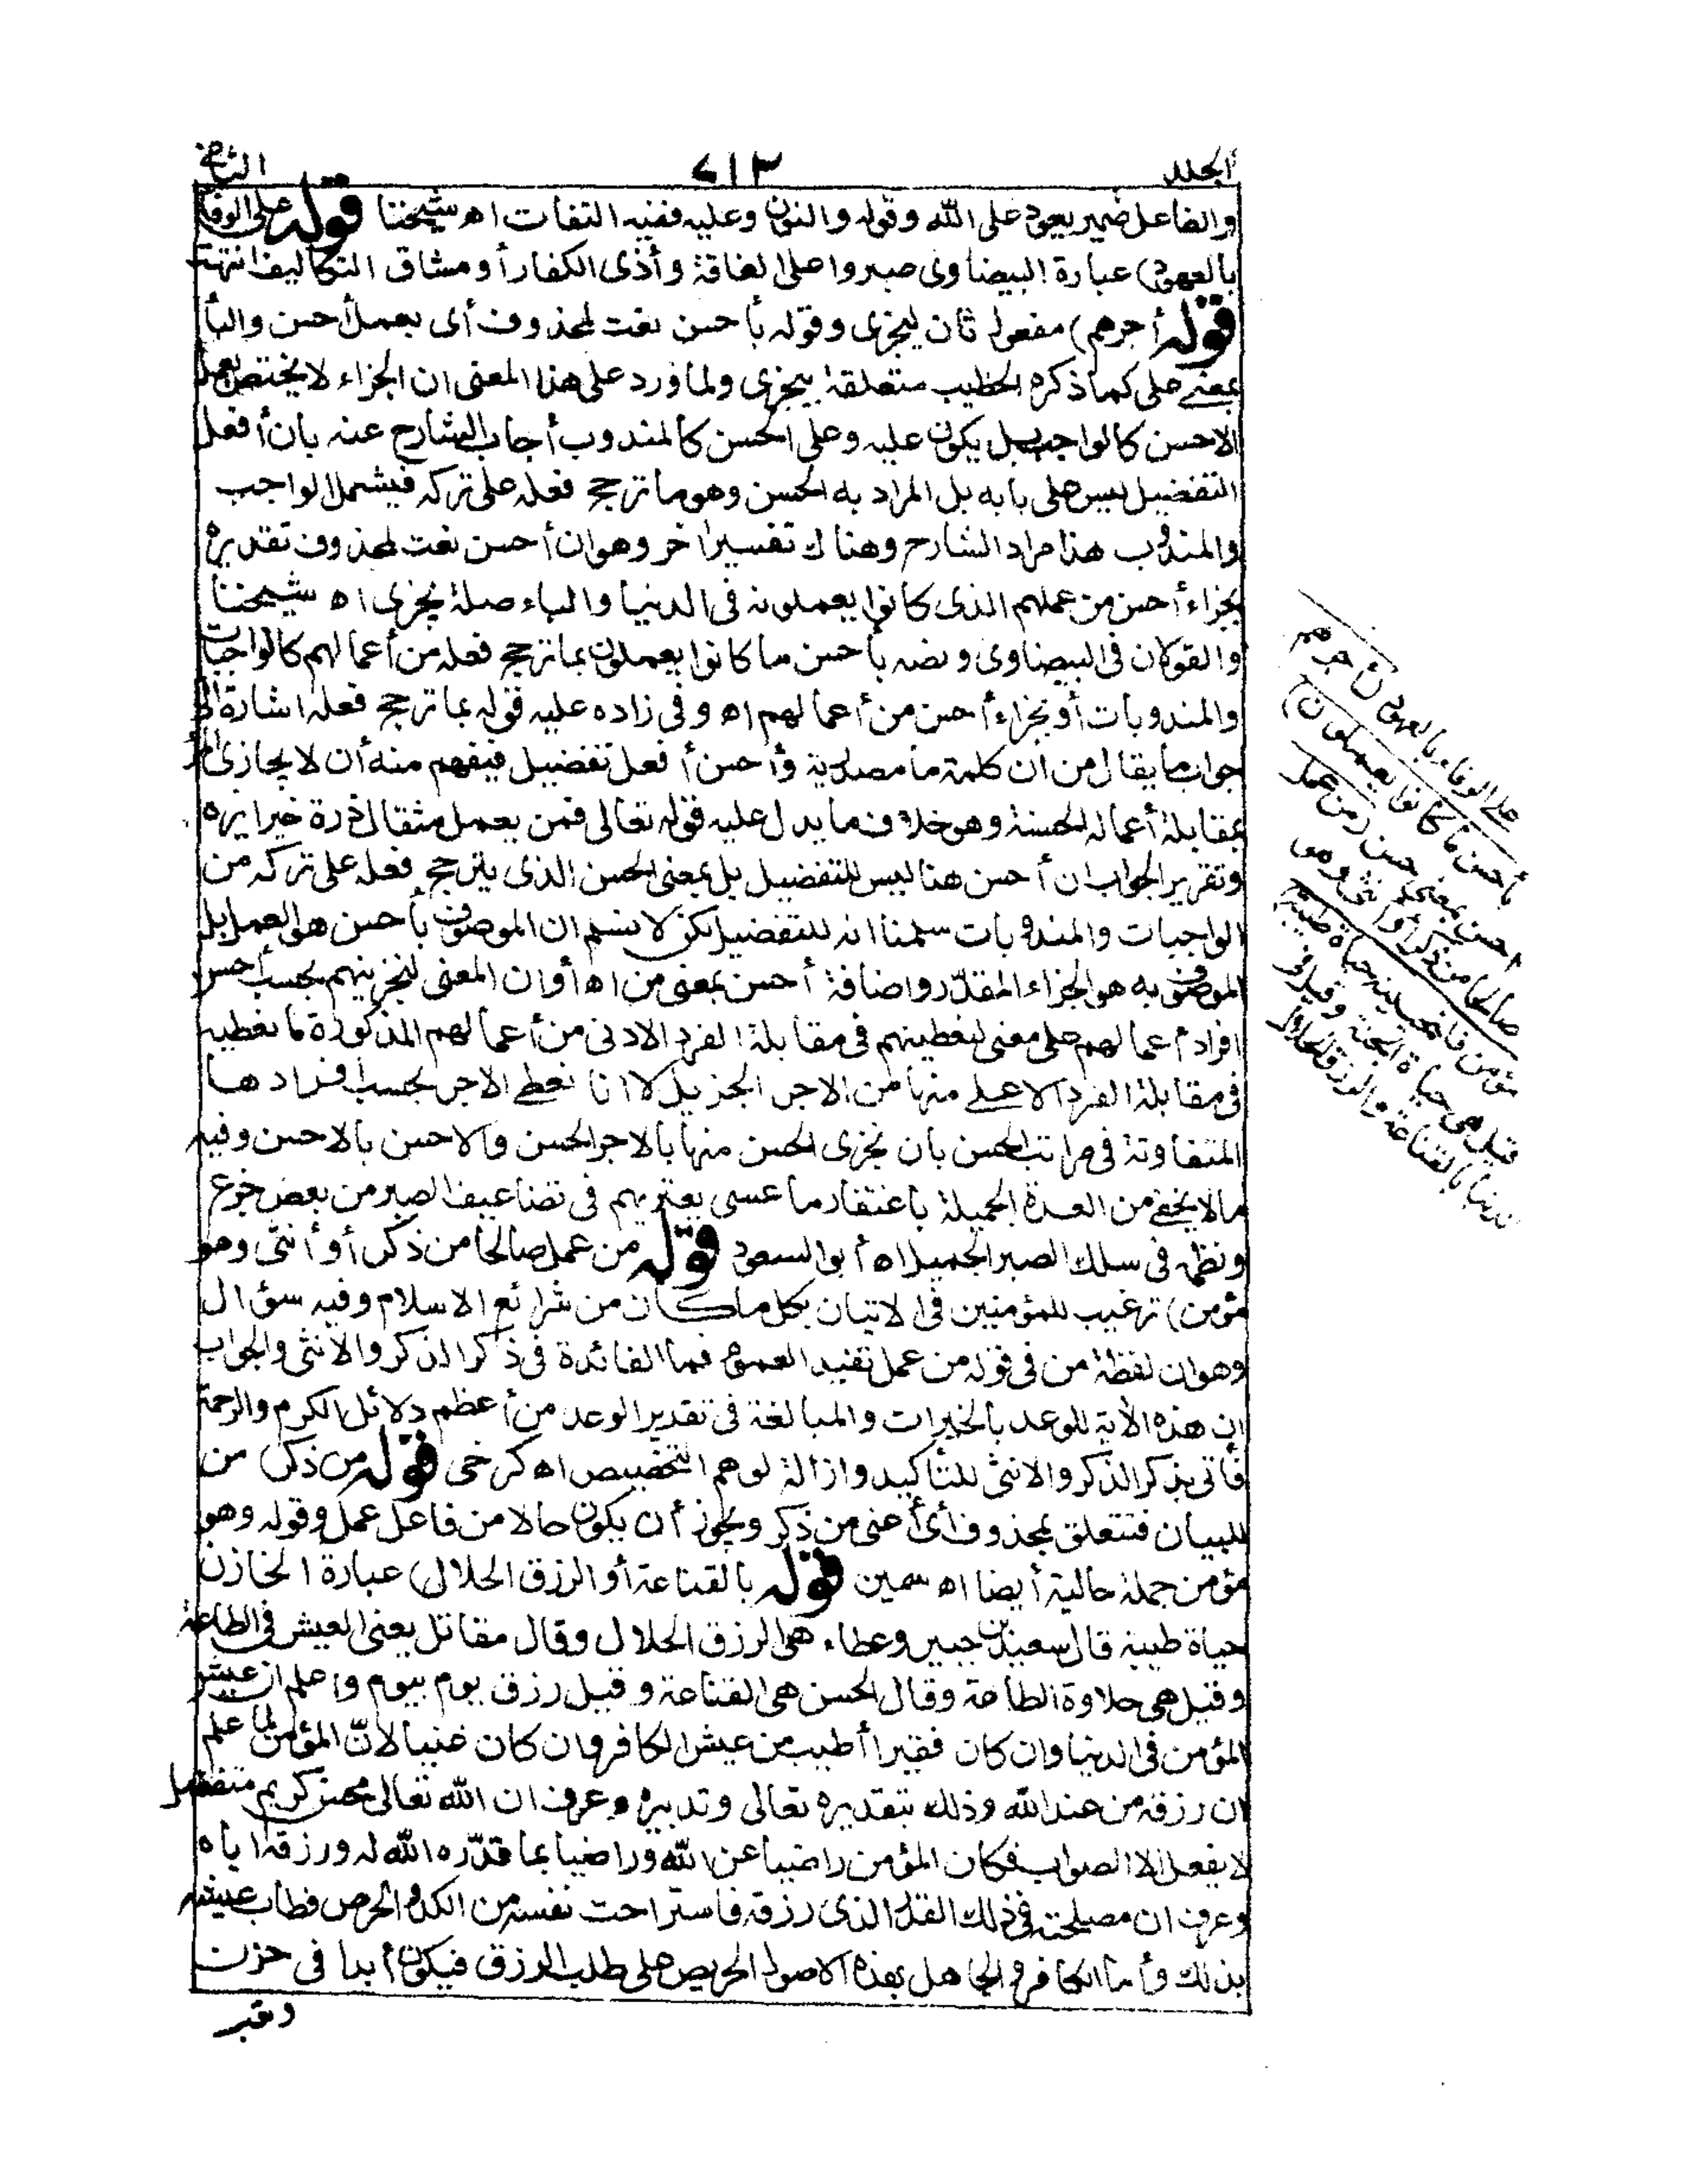 المجلد ٦١٣ الثاني
والفاعل ضمير يعود على الله وقوله والنون وعليه ففيه التفات اه شيخنا قوله على الوفاء
بالعهود) عبارة البيضاوى صبروا على الفاقة وأذى الكفار أو مشاق التكاليف انتهت
قوله أجرهم) مفعول ثان ليجزى وقوله بأحسن نعت لمحذوف أى بعمل أحسن والباء
بمعنى على كما ذكره الخطيب متعلقة بيجزى ولما ورد على هذا المعنى ان الجزاء لا يختص بعمل
الاحسن كالواجب بل يكون عليه وعلى الحسن كالمندوب أجاب الشارح عنه بان أفعل
التفضيل ليس على بابه بل المراد به الحسن وهو ما ترجح فعله على تركه فيشمل الواجب
والمندوب هذا مراد الشارح وهناك تفسير اخر وهو ان أحسن نعت لمحذوف تقديره
بجزاء أحسن من عملهم الذى كانوا يعملونه فى الدنيا والباء صلة يجزى اه شيخنا
والقولان فى البيضاوى ونصه بأحسن ما كانوا يعملون بما ترجح فعله من أعمالهم كالواجبات
والمندوبات أو بجزاء أحسن من أعمالهم اه وفى زاده عليه قوله بما ترجح فعله اشارة الى
جواب ما يقال من ان كلمة ما مصدرية وأحسن أفعل تفضيل فيفهم منه أن لا يجازى
بمقابلة أعماله الحسنة وهو خلاف ما يدل عليه قوله تعالى فمن يعمل مثقال ذرة خيرا يره
وتقرير الجواب ان أحسن هنا ليس للتفضيل بل بمعنى الحسن الذى يترجح فعله على تركه من
الواجبات والمندوبات سلمنا انه للتفضيل لكن لا نسلم ان الموصوف بأحسن هو العمل بل
الموصوف به هو الجزاء المقدّر واضافة أحسن بمعنى من اه أو ان المعنى لنجزينهم بحسب أحسن
افراد أعمالهم على معنى لنعطينهم فى مقابلة الفرد الادنى من أعمالهم المذكورة ما نعطيه
فى مقابلة الفرد الاعلى منها من الاجر الجزيل لا انا نعطى الاجر بحسب افرادها
المتفاوتة فى مراتب الحسن بان نجزى الحسن منها بالاجر الحسن والاحسن بالاحسن وفيه
ما لا يخفى من العدة الجميلة باغتفار ما عسى يعتريهم فى تضاعيف الصبر من بعض جزع
ونظمه فى سلك الصبر الجميل اه أبو السعود قوله من عمل صالحا من ذكر أو أنثى وهو
مؤمن) ترغيب للمؤمنين فى الاتيان بكل ما كان من شرائع الاسلام وفيه سؤال
وهو ان لفظة من فى قوله من عمل تفيد العموم فما الفائدة فى ذكر الذكر والانثى والجواب
ان هذه الآية للوعد بالخيرات والمبالغة فى تقدير الوعد من أعظم دلائل الكرم والرحمة
فأتى بذكر الذكر والانثى للتأكيد وازالة لوهم التخصيص اه كرخى قوله من ذكر) من
للبيان فتتعلق بمحذوف أى أعنى من ذكر ويجوز أن يكون حالا من فاعل عمل وقوله وهو
مؤمن جملة حالية أيضا اه سمين قوله بالقناعة أو الرزق الحلال) عبارة الخازن
حياة طيبة قال سعيد بن جبير وعطاء هى الرزق الحلال وقال مقاتل يعنى العيش فى الطاعة
وقيل هى حلاوة الطاعة وقال الحسن هى القناعة وقيل رزق يوم بيوم واعلم ان عيش
المؤمن فى الدنيا وان كان فقيرا أطيب من عيش الكافر وان كان غنيا لانّ المؤمن لما علم
ان رزقه من عند الله وذلك بتقديره تعالى وتدبيره وعرف ان الله تعالى محسن كريم متفضل
لا يفعل الا الصواب فكان المؤمن راضيا عن الله وراضيا بما قدّره الله له ورزقه اياه
وعرف ان مصلحته فى ذلك القدر الذى رزقه فاستراحت نفسه من الكد والحرص فطاب عيشه
بذلك وأما الكافر والجاهل بهذه الاصول الحريص على طلب الرزق فيكون أبدا فى حزن
وتعب
على الوفاء بالعهود (أجرهم
بأحسن ما كانوا يعملون)
أحسن بمعنى حسن (من عمل
صالحا من ذكر أو أنثى وهو
مؤمن فلنحيينه حياة طيبة)
قيل هى حياة الجنة وقيل فى
الدنيا بالقناعة والرزق الحلال